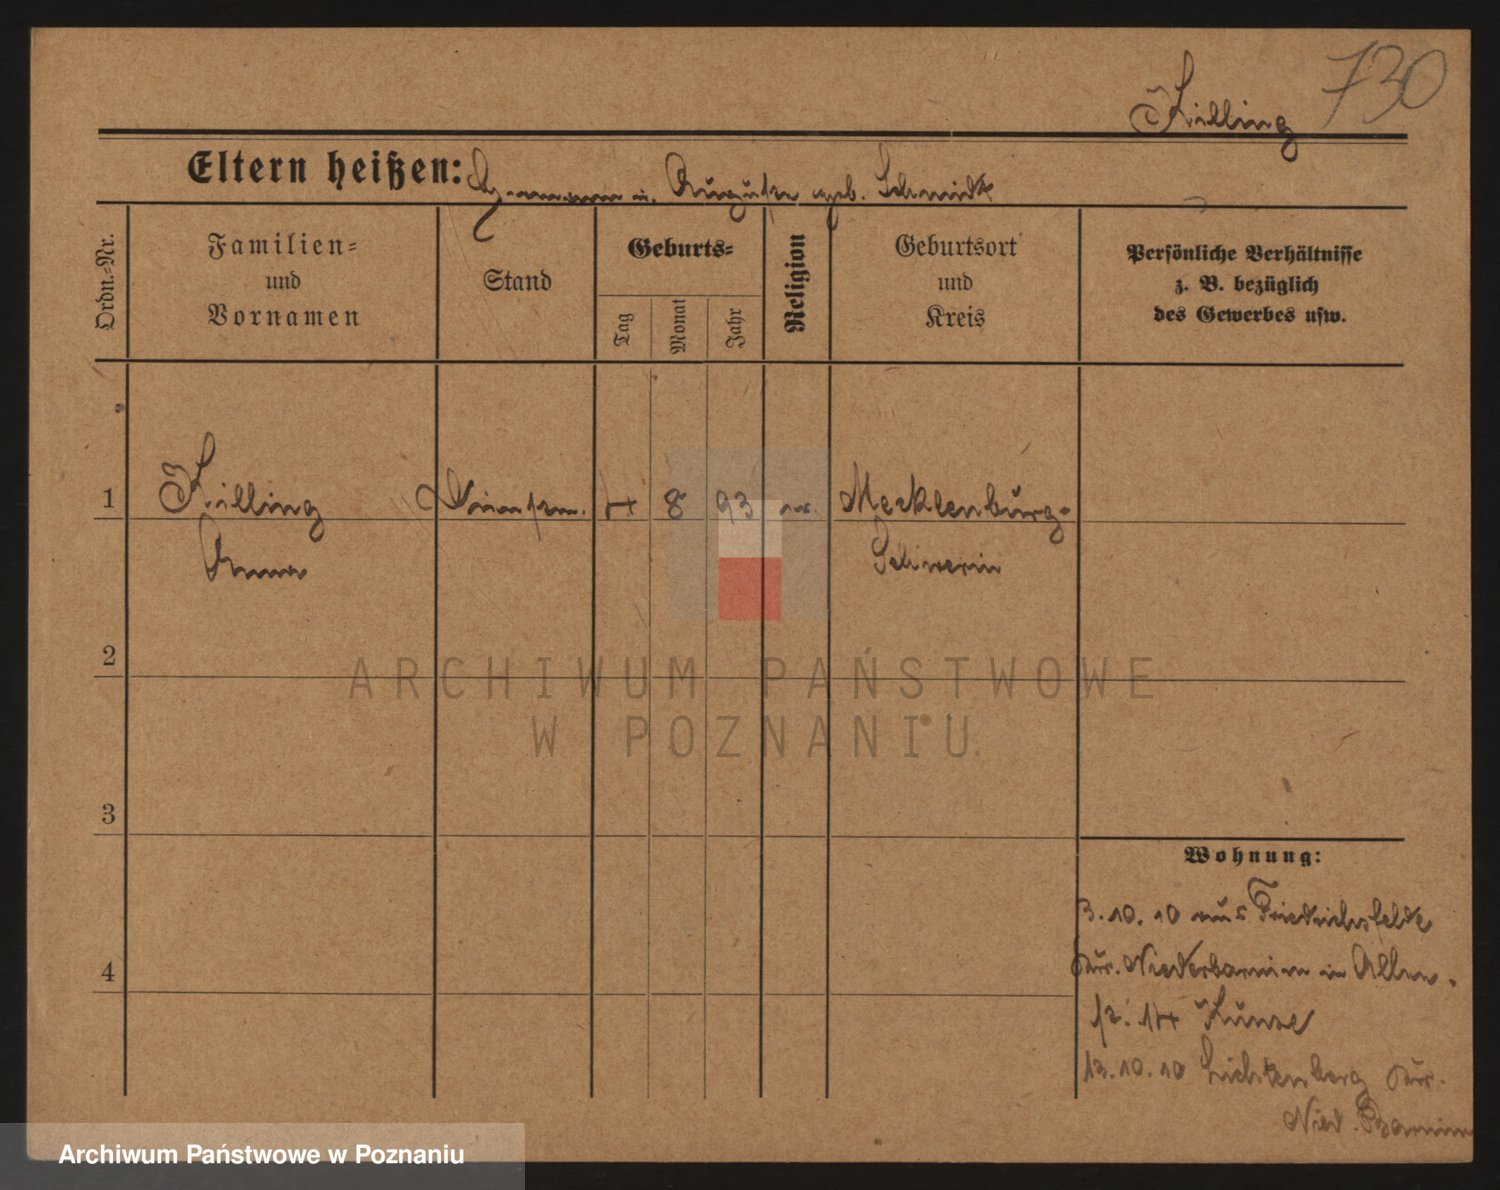 730
Killing
Eltern heißen: Hermann u. Auguste geb. Schmidt
Ordn.-Nr.
Familien-
und
Vornamen
Stand
Geburts-
Tag
Monat
Jahr
Religion
Geburtsort
und
Kreis
Persönliche Verhältnisse
z. B. bezüglich
des Gewerbes usw.
1 Killing 4 8 93 Mecklenburg-
Anna Schwerin
2
3
4
ARCHIWUM PAŃSTWOWE
W POZNANIU
Wohnung:
3.10.10 aus Friedrichsfelde
Niederbarnim in
14 Kunze
13.10.10 Lichtenberg
Nied. Barnim
Archiwum Państwowe w Poznaniu